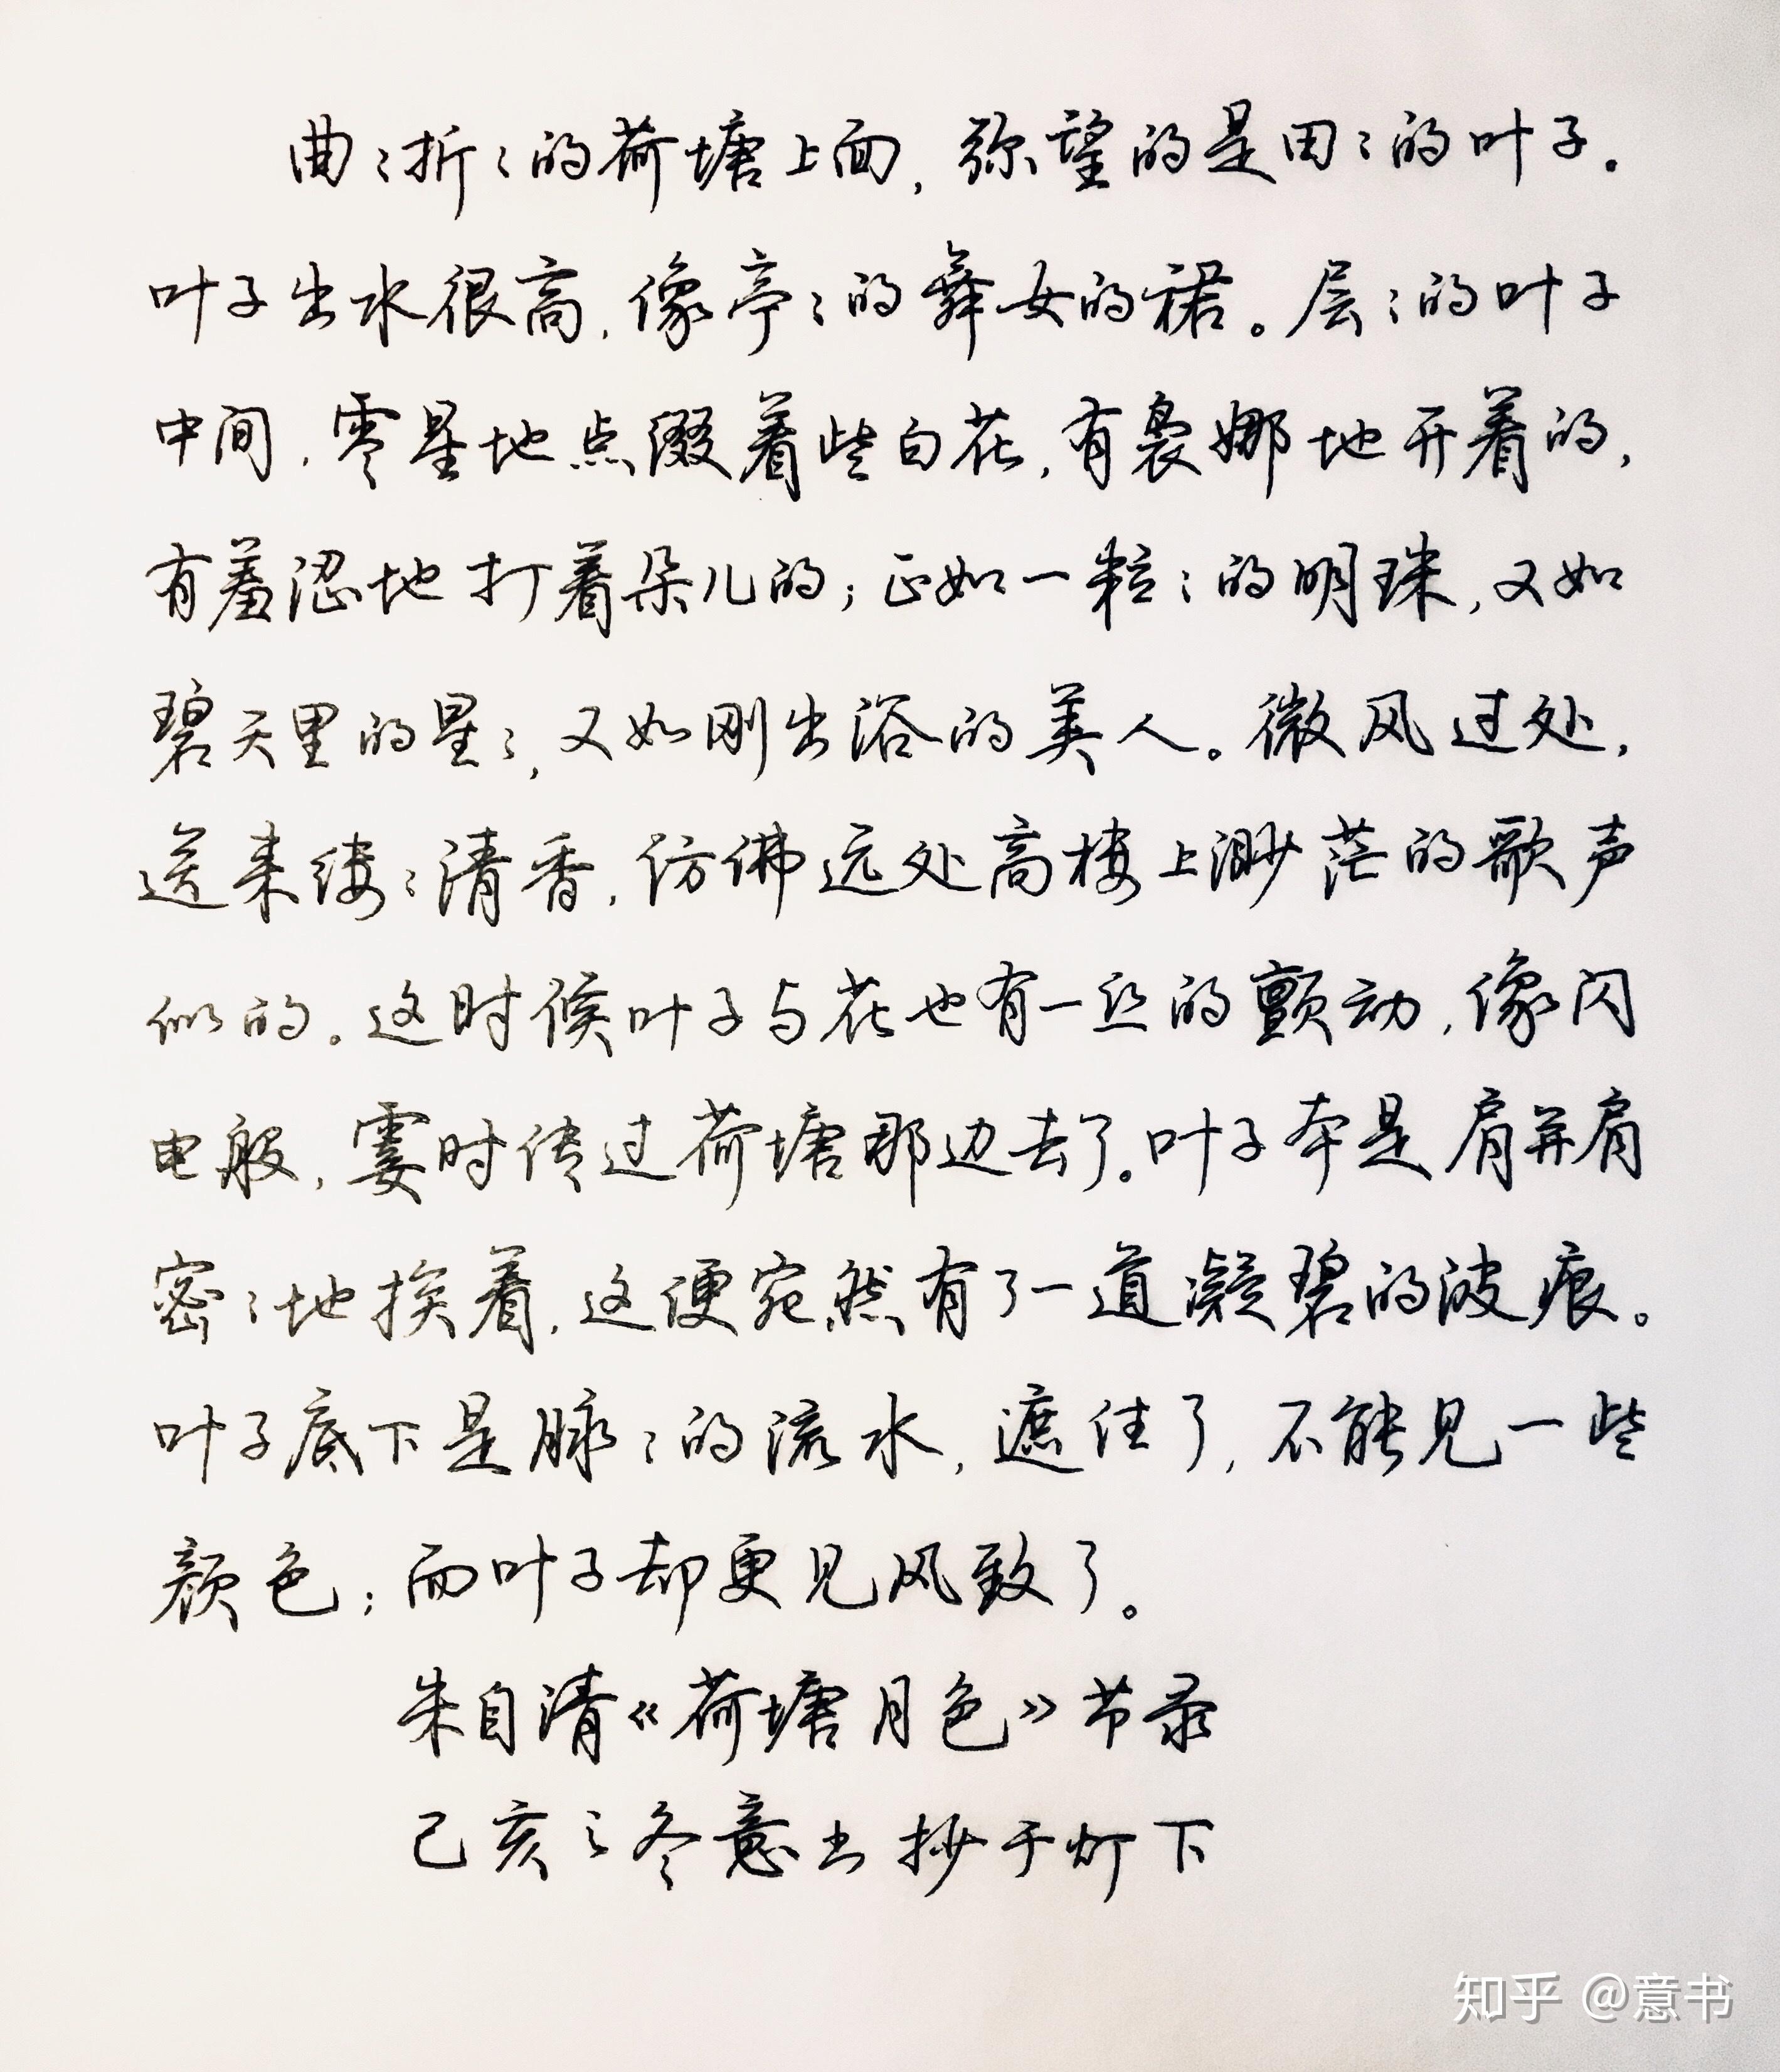 曲々折々的荷塘上面，弥望的是田々的叶子。
叶子出水很高，像亭々的舞女的裙。层々的叶子
中间，零星地点缀着些白花，有袅娜地开着的，
有羞涩地打着朵儿的；正如一粒々的明珠，又如
碧天里的星々，又如刚出浴的美人。微风过处，
送来缕々清香，仿佛远处高楼上渺茫的歌声
似的。这时候叶子与花也有一丝的颤动，像闪
电般，霎时传过荷塘那边去了。叶子本是肩并肩
密々地挨着，这便宛然有了一道凝碧的波痕。
叶子底下是脉々的流水，遮住了，不能见一些
颜色；而叶子却更见风致了。
朱自清《荷塘月色》节录
己亥之冬意书抄于灯下
知乎 @意书